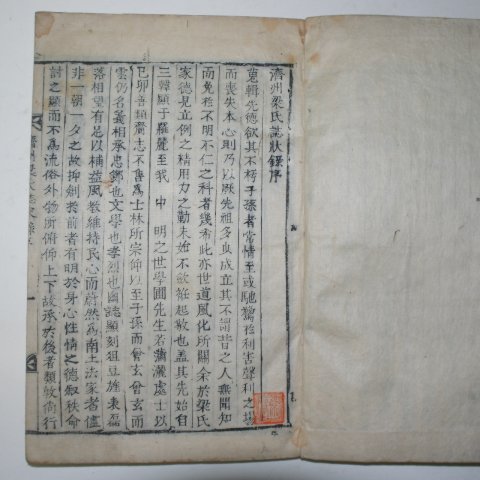 濟州梁氏誌狀錄序
蒐輯先德欲其不朽子孫者常情至或馳騖於利害聲利之場
而喪失本心則乃以厥先祖多臭成立其不謂昔之人無聞知
而免於不明不仁之科者幾希此亦世道風化所關余於梁氏
家德見立例之精用力之勤未始不欲衽起敬也盖其先始自
三韓顯于羅麗至我 中 明之世學圃先生若瀟灑處士以
己卯善類齎志不售爲士林所宗仰以至子孫而曾玄曾玄而
雲仍名義相承忠節也文學也孝烈也幽誌顯刻狙豆旌表磊
落相望有足以補益風敎維持民心而蔚然爲南土法家者僅
非一朝一夕之故抑創於前者有明於身心性情之德叙秩命
討之顯而不爲流俗外物所俯仰上下故承於後者類敦尙行